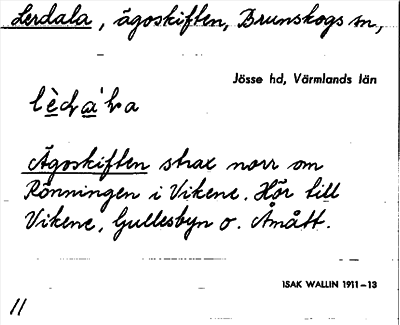 Lerdala, ägoskiften, Brunskogs sn,
Jösse hd, Värmlands län
Ägoskiften strax norr om
Rönningen i Vikene. Hör till
Vikene, Gullesbyn o. Åmått.
ISAK WALLIN 1911-13
11